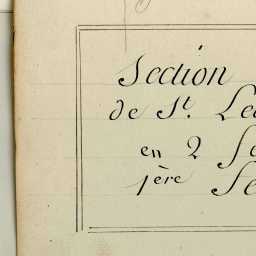 Section
de St. Le
en 2
1ère